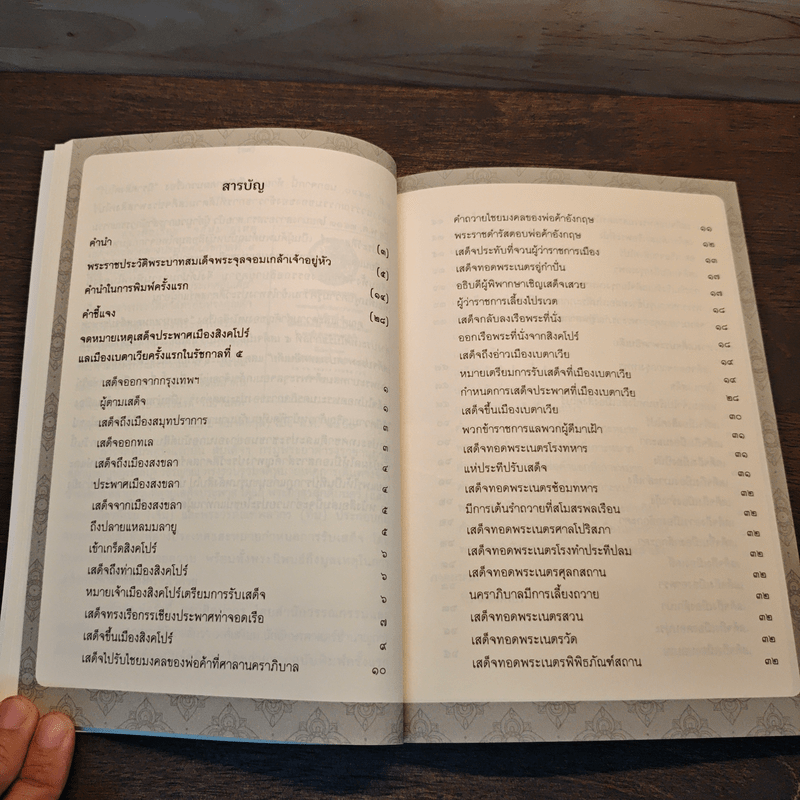 สารบัญ
คำนำ (๑)
พระราชประวัติพระบาทสมเด็จพระจุลจอมเกล้าเจ้าอยู่หัว (๕)
คำนำในการพิมพ์ครั้งแรก (๑๔)
คำชี้แจง (๒๘)
จดหมายเหตุเสด็จประพาศเมืองสิงคโปร์
แลเมืองเบตาเวียครั้งแรกในรัชกาลที่ ๕
เสด็จออกจากกรุงเทพฯ ๑
ผู้ตามเสด็จ ๑
เสด็จถึงเมืองสมุทปราการ ๓
เสด็จออกทเล ๓
เสด็จถึงเมืองสงขลา ๔
ประพาศเมืองสงขลา ๔
เสด็จจากเมืองสงขลา ๕
ถึงปลายแหลมมลายู ๕
เข้าเกร็ดสิงคโปร์ ๖
เสด็จถึงท่าเมืองสิงคโปร์ ๖
หมายเจ้าเมืองสิงคโปร์เตรียมการรับเสด็จ ๖
เสด็จทรงเรือกรรเชียงประพาศท่าจอดเรือ ๗
เสด็จขึ้นเมืองสิงคโปร์ ๙
เสด็จไปรับไชยมงคลของพ่อค้าที่ศาลานคราภิบาล ๑๐
คำถวายไชยมงคลของพ่อค้าอังกฤษ ๑๑
พระราชดำรัสตอบพ่อค้าอังกฤษ ๑๒
เสด็จประทับที่จวนผู้ว่าราชการเมือง ๑๓
เสด็จทอดพระเนตรอู่กำปั่น ๑๗
อธิบดีผู้พิพากษาเชิญเสด็จเสวย ๑๗
ผู้ว่าราชการเลี้ยงไปรเวต ๑๘
เสด็จกลับลงเรือพระที่นั่ง ๑๘
ออกเรือพระที่นั่งจากสิงคโปร์ ๑๘
เสด็จถึงอ่าวเมืองเบตาเวีย ๑๔
หมายเตรียมการรับเสด็จที่เมืองเบตาเวีย ๑๔
กำหนดการเสด็จประพาศที่เมืองเบตาเวีย ๒๘
เสด็จขึ้นเมืองเบตาเวีย ๓๐
พวกข้าราชการแลพวกผู้ดีมาเฝ้า ๓๑
เสด็จทอดพระเนตรโรงทหาร ๓๑
แห่ประทีปรับเสด็จ ๓๑
เสด็จทอดพระเนตรซ้อมทหาร ๓๒
มีการเต้นรำถวายที่สโมสรพลเรือน ๓๒
เสด็จทอดพระเนตรศาลโปริสภา ๓๒
เสด็จทอดพระเนตรโรงทำประทีปลม ๓๒
เสด็จทอดพระเนตรศุลกสถาน ๓๒
นคราภิบาลมีการเลี้ยงถวาย ๓๒
เสด็จทอดพระเนตรสวน ๓๒
เสด็จทอดพระเนตรวัด ๓๒
เสด็จทอดพระเนตรพิพิธภัณฑ์สถาน ๓๒